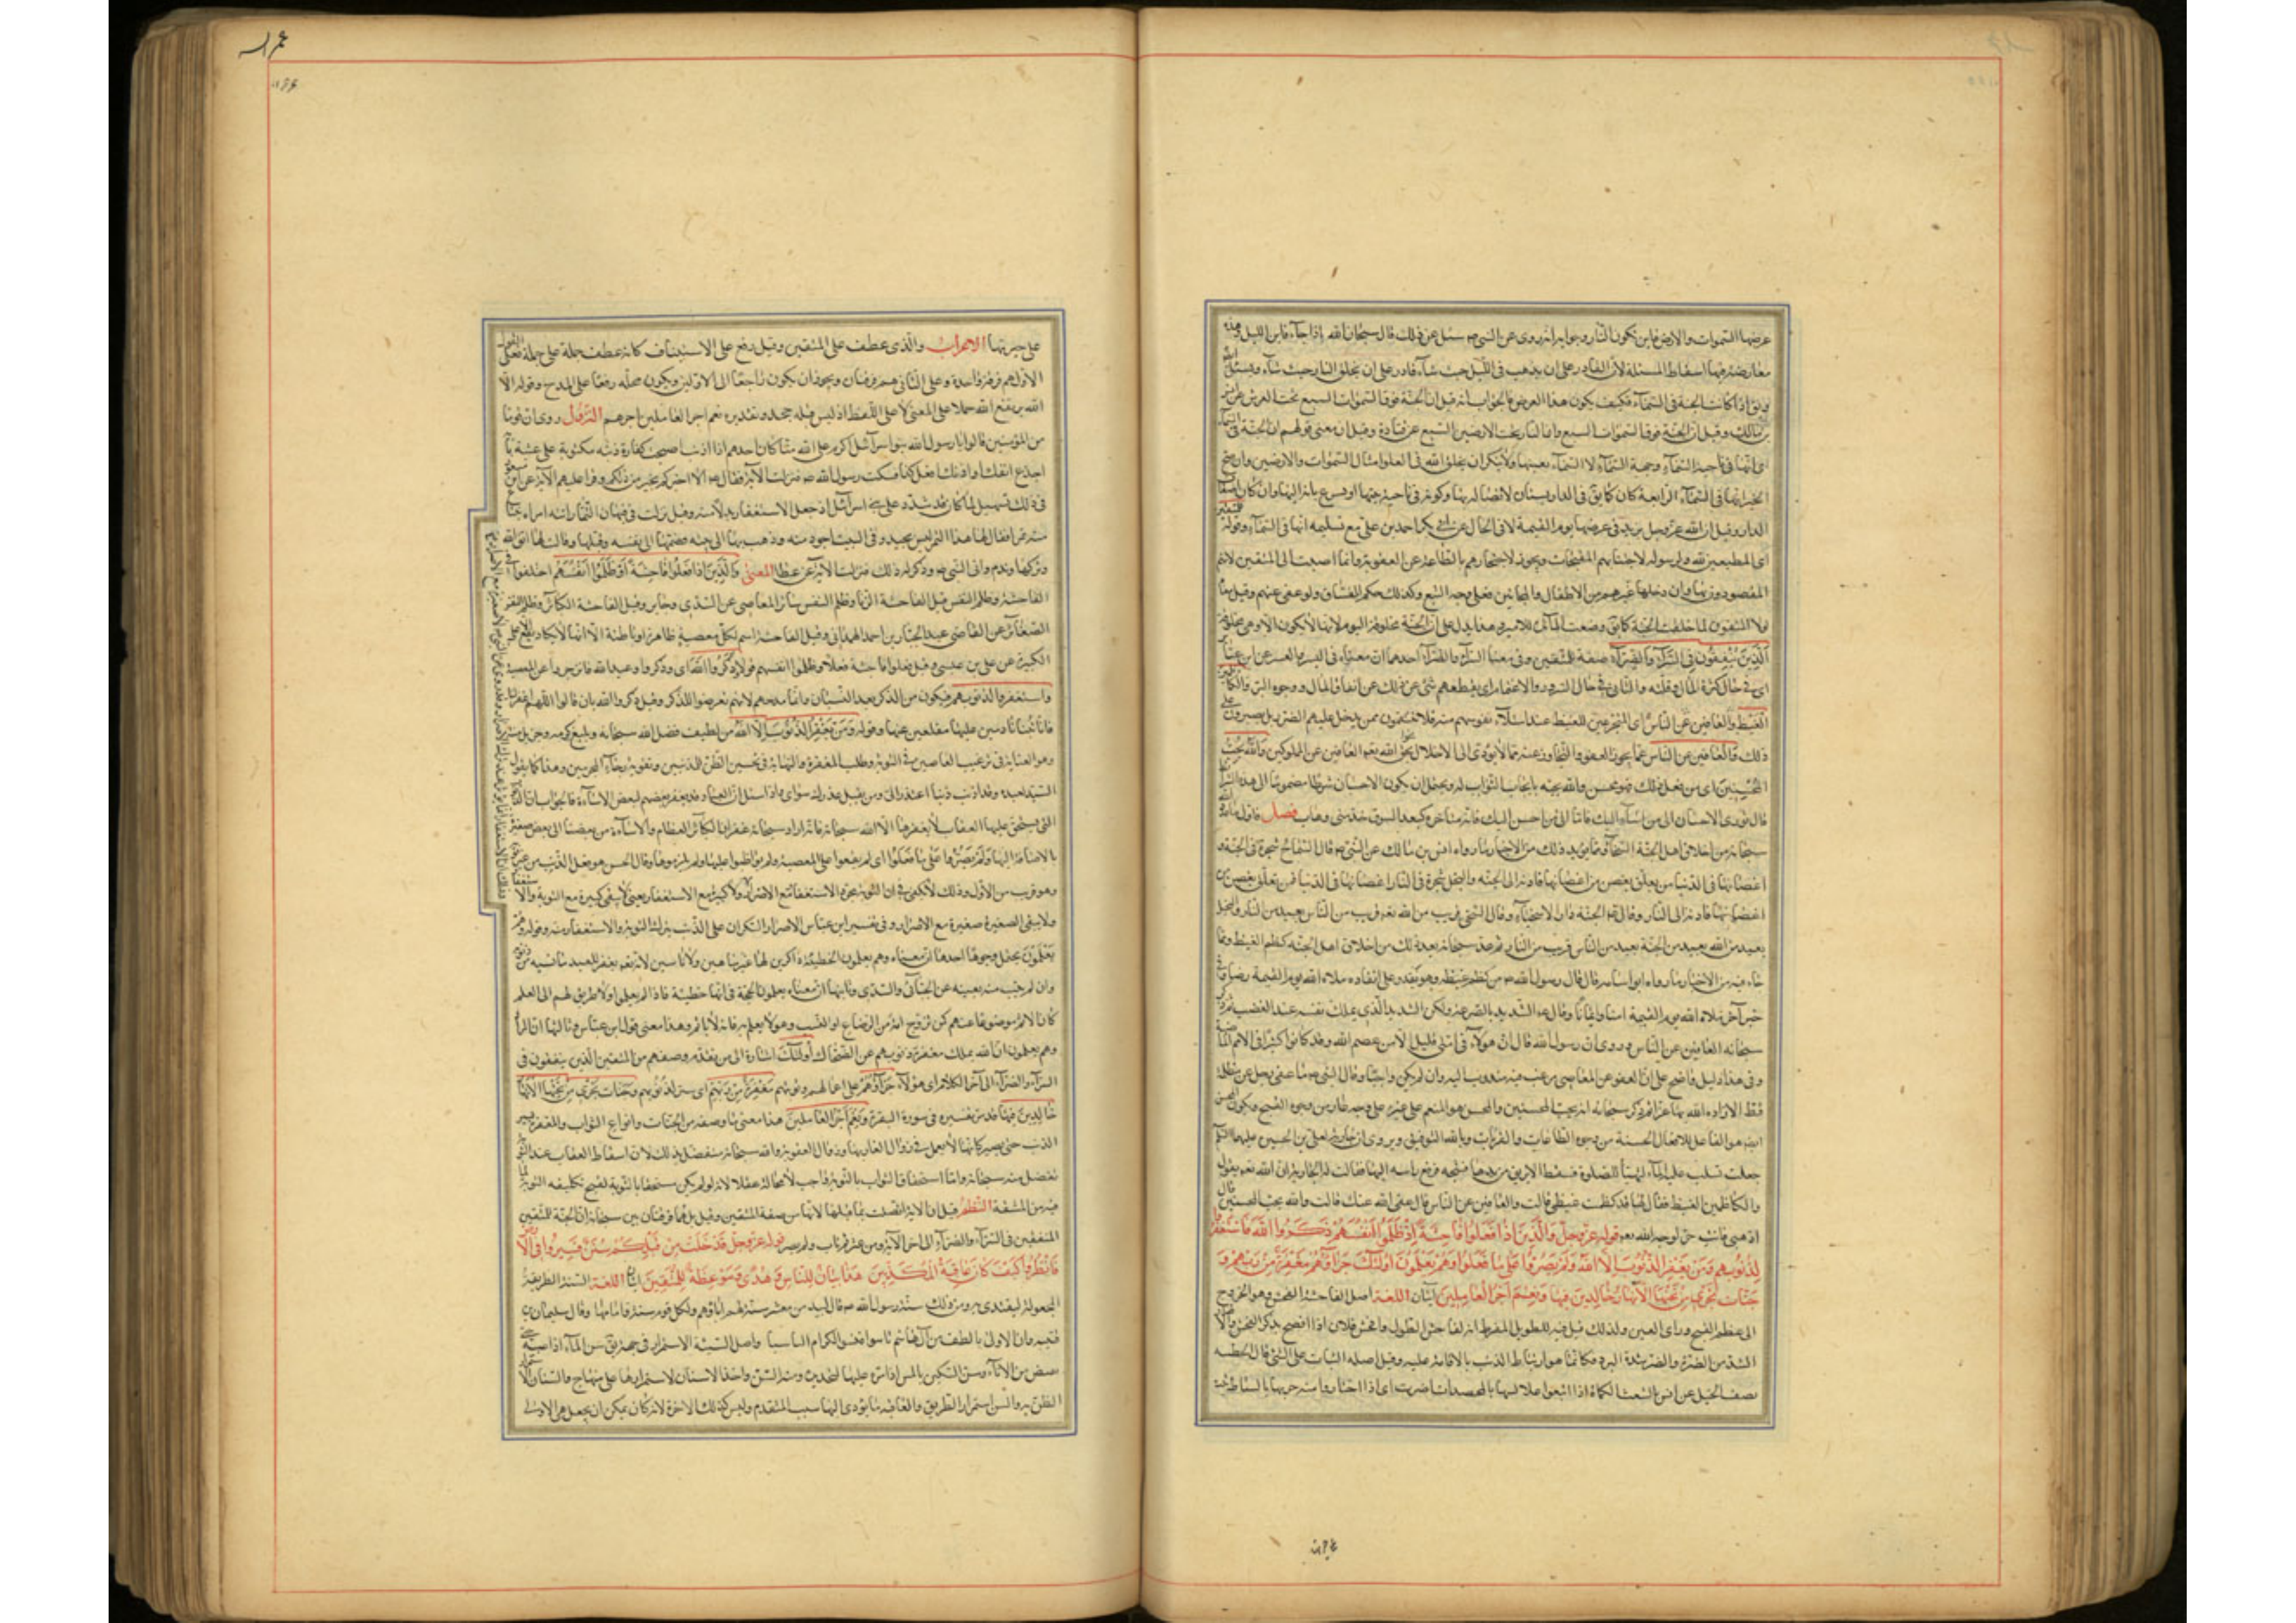 عرضها السموات والارض فاين تكون النار وجوابه انه روى عن النبي ص سئل عن ذلك قال سبحان الله اذا جاء فاين الليل وهذه
معارضة فيها اسقاط المسئلة لان القادر على ان يذهب في الليل حيث شاء قادر على ان يخلق النار حيث شاء ويسئل
اذا كانت الجنة في السماء فكيف يكون هذا العرض فالجواب انه قيل ان الجنة فوق السموات السبع تحت العرش عن انس
بن مالك وقيل ان الجنة فوق السموات السبع وان النار تحت الارضين السبع عن قتادة وقيل ان معنى قولهم ان الجنة في السماء
انها في ناحية السماء وجهة السماء لا السماء بعينها ولا ينكر ان يخلق الله في العلو امثال السموات والارضين وان صح
الخبر انها في السماء الرابعة كان كما يق في الدار بستان لاتصاله بها وكونه في ناحية منها او يشرع بابه اليها وان كان اضعاف
الدار وقيل ان الله عز وجل يزيد في عرضها يوم القيمة لا في الحال عن ابي بكر احمد بن على مع تسليمه انها في السماء وقوله للمتقين
اى المطيعين لله ولرسوله لاجتنابهم المقبحات ويجوز لاحتجازهم بالطاعة عن العقوبة وانما اضيفت الى المتقين لانهم
المقصودون بها وان دخلها غيرهم من الاطفال والمجانين فعلى وجه التبع وكذلك حكم الفساق ولو عفى عنهم وقيل معناه
لولا المتقون لما خلقت الجنة كما يق وضعت المائدة للامير وهذا يدل على ان الجنة مخلوقة اليوم لانها لا تكون الا وهي مخلوقة
الذين ينفقون في السراء والضراء صفة للمتقين وفي معنى السراء والضراء احدهما ان معناه في اليسر والعسر عن ابن عباس
اى في حال كثرة المال وقلته والثاني في حال السرور والاغتمام اى لا يقطعهم شئ عن ذلك عن انفاق المال في وجوه البر والكاظمين
الغيظ والعافين عن الناس اى المتجرعين للغيظ عند امتلاء نفوسهم منه فلا ينتقمون ممن يدخل عليهم الضرر بل يصبرون على
ذلك والعافين عن الناس عما يجوز العفو والتجاوز عنه مما لا يؤدى الى الاخلال بحق الله تعم العافين عن المملوكين والله يحب
المحسنين اى من فعل ذلك فهو محسن والله يحبه بايجاب الثواب له ويحتمل ان يكون الاحسان شرطا مضموما الى هذه الشرايط
فصل
سبحانه من اخلاق اهل الجنة السخاء ومما يؤيد ذلك من الاخبار ما رواه انس بن مالك عن النبي ص قال السخاء شجرة في الجنة و
اغصانها في الدنيا من تعلق بغصن من اغصانها قادته الى الجنة والبخل شجرة في النار اغصانها في الدنيا فمن تعلق بغصن من
اغصانها قادته الى النار وقال ع الجنة دار الاسخياء وقال السخي قريب من الله تعم قريب من الناس بعيد من النار والبخيل
بعيد من الله بعيد من الجنة بعيد من الناس قريب من النار ثم عد سبحانه بعد ذلك من اخلاق اهل الجنة كظم الغيظ ومما
جاء فيه من الاخبار ما رواه ابو امامه قال قال رسول الله ص من كظم غيظه وهو يقدر على انفاذه ملاه الله يوم القيمة رضا وفي
خبر آخر ملاه الله يوم القيمة امنا وايمانا وقال ع ليس الشديد بالصرعة ولكن الشديد الذي يملك نفسه عند الغضب ثم ذكر
سبحانه العافين عن الناس وروى ان رسول الله قال ان هؤلاء في امتي قليل الا من عصم الله وقد كانوا كثيرا في الامم الماضية
وفي هذا دليل واضح على ان العفو عن المعاصي مرغب فيه مندوب اليه وان لم يكن واجبا وقال النبي ص ما عفى رجل عن مظلمة
قط الا زاده الله بها عزا ثم ذكر سبحانه انه يحب المحسنين والمحسن هو المنعم على غيره على وجه عار من وجوه القبح ويكون المحسن
ايضا هو الفاعل للافعال الحسنة من وجوه الطاعات والقربات وبالله التوفيق وروى ان جارية لعلي بن الحسين عليهما السلام
جعلت تسكب عليه الماء ليتهيأ للصلوة فسقط الابريق من يدها فشجه فرفع راسه اليها فقالت له الجارية ان الله تعم يقول
والكاظمين الغيظ فقال لها قد كظمت غيظي قالت والعافين عن الناس قال عفى الله عنك قالت والله يحب المحسنين قال
اذهبي فانت حرة لوجه الله تعم قوله عز وجل والذين اذا فعلوا فاحشة او ظلموا انفسهم ذكروا الله فاستغفروا
لذنوبهم ومن يغفر الذنوب الا الله ولم يصروا على ما فعلوا وهم يعلمون اولئك جزاؤهم مغفرة من ربهم و
جنات تجري من تحتها الانهار خالدين فيها ونعم اجر العاملين آيتان اللغة اصل الفاحشة الفحش وهو الخروج
الى عظم القبح وراى العين ولذلك قيل فيه للطويل المفرط انه لفاحش الطول وافحش فلان اذا افصح بذكر الفحش والاصرار
الشد من الصرة والصر شدة البرد فكانما هو ارتباط الذنب بالاقامة عليه وقيل اصله الثبات على الشئ قال الحطيئه
على حربتها الاعراب والذى عطف على المتقين وقيل رفع على الاستيناف كانه عطف جملة على جملة فعلى القول
الاول هم فرقة واحدة وعلى الثاني هم فرقتان ويجوز ان يكون راجعا الى الاولين ويكون محله رفعا على المدح وقوله الا
الله يرتفع الله حملا على المعنى لا على اللفظ اذ ليس قبله جحد وتقديره نعم اجر العاملين اجرهم النزول روى ان قوما
من المؤمنين قالوا يا رسول الله بنو اسرائيل اكرم على الله منا كان احدهم اذا اذنب اصبحت كفارة ذنبه مكتوبة على عتبة بابه
اجدع انفك او اذنك افعل كذا فسكت رسول الله ص فنزلت الآية فقال ص الا اخبركم بخير من ذلكم وقرا عليهم الآية عن ابن مسعود
في ذلك تسهيل لما كان قد شدد على بني اسرائيل اذ جعل الاستغفار بدلا منه وقيل نزلت في نبهان التمار اتته امراة تبتاع
منه تمرا فقال لها هذا التمر ليس بجيد وفي البيت اجود منه وذهب بها الى بيته فضمها الى نفسه وقبلها وقالت لها اتق الله
وتركها وندم واتى النبي ص وذكر له ذلك فنزلت الآية عن عطا المعنى والذين اذا فعلوا فاحشة او ظلموا انفسهم اختلفوا في
الفاحشة وظلم النفس فقيل الفاحشة الزنا وظلم النفس سائر المعاصي عن السدي وجابر وقيل الفاحشة الكبائر وظلم النفس
الصغائر عن القاضي عبد الجبار بن احمد الهمداني وقيل الفاحشة اسم لكل معصية ظاهرة او باطنة الا انها لا يكاد يقع الا على
الكبيرة عن علي بن عيسى وقيل فعلوا فاحشة فعلا وظلموا انفسهم قولا ذكروا الله اى وذكروا وعيد الله فانزجروا عن المعصية
واستغفروا لذنوبهم فيكون من الذكر بعد النسيان وانما مدحهم لانهم تعرضوا للذكر وقيل ذكروا الله بان قالوا اللهم اغفر لنا
فانا تبنا نادمين عليها مقلعين عنها وقوله ومن يغفر الذنوب الا الله من لطيف فضل الله سبحانه وبليغ كرمه وجزيل منته
وهو الغاية في ترغيب العاصين في التوبة وطلب المغفرة والنهاية في تحسين الظن للمذنبين وتقوية رجاء المجرمين وهذا كما يقول
السيد لعبده وقد اذنب ذنبا اعتذر الى ومن يقبل عذرك سواى واذا سئل ان العباد قد يغفر بعضهم لبعض الاساءة فالجواب ان الذنوب
التي يستحق عليها العقاب لا يغفرها الا الله سبحانه فانه اراد سبحانه غفران الكبائر العظام والاساءة من بعضنا الى بعض صغيرة
بالاضافة اليها ولم يصروا على ما فعلوا اى لم يقيموا على المعصية ولم يواظبوا عليها ولم يلزموها وقال الحسن هو فعل الذنب من غير توبة
وهو قريب من الاول وذلك لا يكفي في ان التوبة مجرد الاستغفار مع الاصرار ولا كبيرة مع الاستغفار يعني لا يبقى كبيرة مع التوبة والاستغفار
ولا يبقى الصغيرة صغيرة مع الاصرار وفي تفسير ابن عباس الاصرار السكران على الذنب بترك التوبة والاستغفار منه وقوله وهم
يعلمون يحتمل وجوها احدها ان معناه وهم يعلمون الخطيئة ذاكرين لها غير ساهين ولا ناسين لانه تعم يغفر للعبد ما نسيه من ذنوبه
وان لم يتب منه بعينه عن الجبائي والسدي وثانيها ان معناه يعلمون الحجة في انها خطيئة فاذا لم يعلموا ولا طريق لهم الى العلم
كان الاثم موضوعا عنهم كمن تزوج امه من الرضاع او النسب وهو لا يعلم به فانه لا ياثم وهذا معنى قول ابن عباس وثالثها ان المراد
وهم يعلمون ان الله يملك مغفرة ذنوبهم عن الضحاك اولئك اشارة الى من تقدم وصفهم من المتقين الذين ينفقون في
السراء والضراء الى آخر الكلام اى هؤلاء جزاؤهم على اعمالهم وتوبتهم مغفرة من ربهم اى ستر لذنوبهم وجنات تجري من تحتها الانهار
خالدين فيها قد مر تفسيره في سورة البقرة ونعم اجر العاملين هذا يعني ما وصفه من الجنات وانواع الثواب والمغفرة بستر
الذنب حتى يصير كانها لم يعمل في زوال العار بها وزوال العقوبة والله سبحانه متفضل بذلك لان اسقاط العقاب عند التوبة
تفضل منه سبحانه واما استحقاق الثواب بالتوبة فواجب لا محالة عقلا لانه لو لم يكن مستحقا بالتوبة لقبح تكليفه التوبة لما
فيه من المشقة النظم قيل ان الآية اتصلت بما قبلها لانها من صفة المتقين وقيل بل هما فرقتان بين سبحانه ان الجنة للمتقين
المنفقين في السراء والضراء الى آخر الآية ومن عثر ثم تاب ولم يصر قوله عز وجل قد خلت من قبلكم سنن فسيروا في الارض
فانظروا كيف كان عاقبة المكذبين هذا بيان للناس وهدى وموعظة للمتقين آيتان اللغة السنة الطريقة
المجعولة ليقتدى به ومن ذلك سنة رسول الله ص قال لبيد من معشر سنت لهم اباؤهم ولكل قوم سنة وامامها وقال سليمان بن
قتيبه وان الاولى بالطف من آل هاشم تاسوا فسنوا للكرام التاسيا واصل السنة الاستمرار في جهة يق سن الماء اذا صبه حتى
يفيض من الاناء وسن السكين بالمسن اذا مره عليها لتحديده ومنه السن واحد الاسنان لاستمرارها على منهاج والسنان لاستمرار
الطعن به والسنن استمرار الطريق والعاقبة ما يؤدى اليها السبب المتقدم وليس كذلك الآخرة لانه كان يمكن ان يجعل هي الاولى